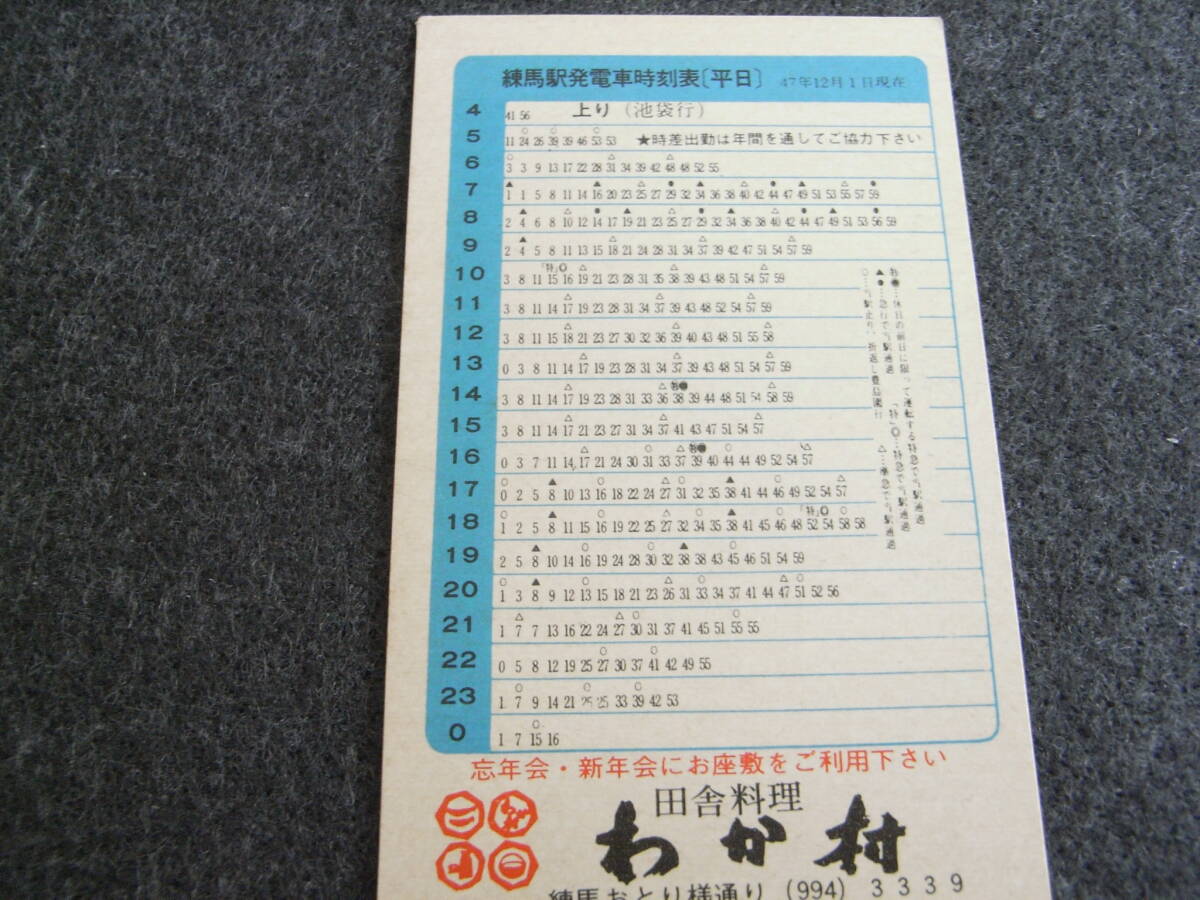 練馬駅発電車時刻表〔平日〕 47年12月1日現在
4 41 56 上り (池袋行)
5 11 24 26 39 39 46 53 53 ★時差出勤は年間を通してご協力下さい
6 3 3 9 13 17 22 28 31 34 39 42 48 48 52 55
7 1 1 5 8 11 14 16 20 23 25 27 29 32 34 36 38 40 42 44 47 49 51 53 55 57 59
8 2 4 6 8 10 12 14 17 19 21 23 25 27 29 32 34 36 38 40 42 44 47 49 51 53 56 59
9 2 4 5 8 11 13 15 18 21 24 28 31 34 37 39 42 47 51 54 57 59
「特」◎
10 3 8 11 15 16 19 21 23 28 31 35 38 39 43 48 51 54 57 59
11 3 8 11 14 17 19 23 28 31 34 37 39 43 48 52 54 57 59
12 3 8 11 15 18 21 23 27 30 32 36 39 40 43 48 51 55 58
13 0 3 8 11 14 17 19 23 28 31 34 37 39 43 48 51 54 57 59
14 3 8 11 14 17 21 23 28 31 33 36 38 39 44 48 51 54 58 59
15 3 8 11 14 17 21 23 27 31 34 37 41 43 47 51 54 57
16 0 3 7 11 14 17 21 24 30 31 33 37 39 40 44 44 49 52 54 57
17 0 2 5 8 10 13 16 18 22 24 27 31 32 35 38 41 44 46 49 52 54 57
「特」◎
18 1 2 5 8 11 15 16 19 22 25 27 32 34 35 38 41 45 46 48 52 54 58 58
19 2 5 8 10 14 16 19 24 28 30 32 38 38 43 45 46 51 54 59
20 1 3 8 9 12 13 15 18 21 23 26 31 33 34 37 41 44 47 51 52 56
21 1 7 7 13 16 22 24 27 30 31 37 41 45 51 55 55
22 0 5 8 12 19 25 27 30 37 41 42 49 55
23 1 7 9 14 21 25 25 33 39 42 53
0 1 7 15 16
特●…休日の前日に限って運転する特急で当駅通過
▲●…急行で当駅通過 「特」◎…特急で当駅通過
○…当駅止り、折返し豊島園行 △…準急で当駅通過
忘年会・新年会にお座敷をご利用下さい
田舎料理
わか村
練馬おとり様通り (994) 3339